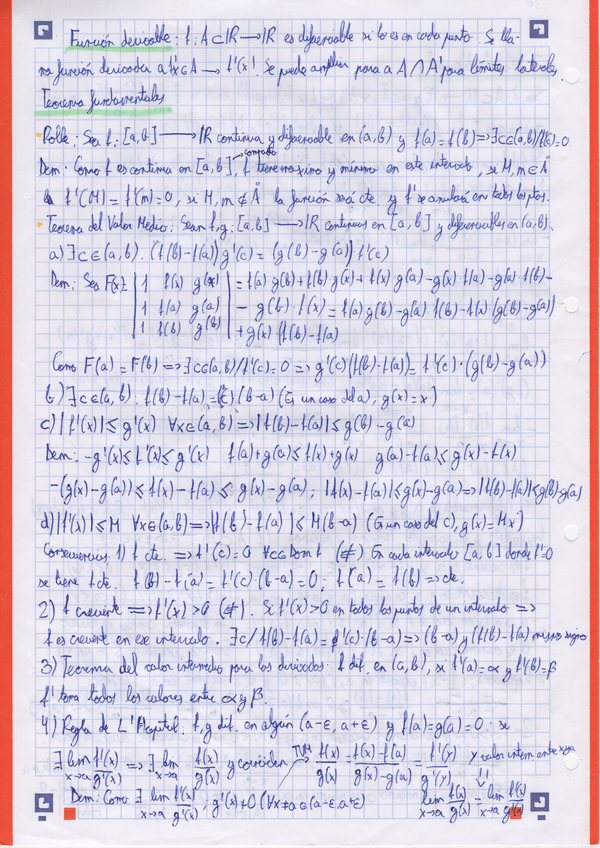 Función derivable: f: A⊂ℝ → ℝ es diferenciable si lo es en cada punto. Se lla-
ma función derivada a f': x∈A → f'(x). Se puede ampliar para a A∩A' para límites laterales.
Teorema fundamentales
Rolle: Sea f: [a,b] → ℝ continua y diferenciable en (a,b) y f(a)=f(b) => ∃c∈(a,b)/f'(c)=0
Dem: Como f es continua en [a,b], f tiene máximo y mínimo en este intervalo, si M, m ∈ Å
compacto
f'(M) = f'(m) = 0, si M, m ∉ Å la función será cte y f' se anulará en todos los ptos.
Teorema del Valor Medio: Sean f, g: [a,b] → ℝ continuas en [a,b] y diferenciables en (a,b).
a) ∃c∈(a,b): (f(b)-f(a)) g'(c) = (g(b)-g(a)) f'(c)
Dem: Sea F(x)= | 1 f(x) g(x) | = f(a) g(b) + f(b) g(x) + f(x) g(a) - g(x) f(a) - g(a) f(b) -
| 1 f(a) g(a) | - g(b) f(x) = f(a) g(b) - g(a) f(b) - f(x) (g(b)-g(a))
| 1 f(b) g(b) | + g(x) (f(b)-f(a))
Como F(a) = F(b) => ∃c∈(a,b)/f'(c)=0 => g'(c) (f(b)-f(a)) = f'(c)·(g(b)-g(a))
b) ∃c∈(a,b): f(b)-f(a) = f'(c) (b-a) (Es un caso del a), g(x)=x)
c) |f'(x)| ≤ g'(x) ∀x∈(a,b) => |f(b)-f(a)| ≤ g(b)-g(a)
Dem: -g'(x) ≤ f'(x) ≤ g'(x) f(a)+g(a) ≤ f(x)+g(x) g(a)-f(a) ≤ g(x)-f(x)
-(g(x)-g(a)) ≤ f(x)-f(a) ≤ g(x)-g(a); |f(x)-f(a)| ≤ g(x)-g(a) => |f(b)-f(a)| ≤ g(b)-g(a)
d) |f'(x)| ≤ M ∀x∈(a,b) => |f(b)-f(a)| ≤ M(b-a) (Es un caso del c), g(x)=Mx)
Consecuencias: 1) f cte. => f'(c)=0 ∀c∈Dom f (⇍) En cada intervalo [a,b] donde f'=0
se tiene f cte. f(b)-f(a) = f'(c)·(b-a) = 0; f(a) = f(b) => cte.
2) f creciente => f'(x) > 0 (⇍). Si f'(x) > 0 en todos los puntos de un intervalo =>
f es creciente en ese intervalo. ∃c / f(b)-f(a) = f'(c)·(b-a) => (b-a) y (f(b)-f(a)) mismo signo
3) Teorema del valor intermedio para las derivadas: f dif. en (a,b), si f'(a)=α y f'(b)=β
f' toma todos los valores entre α y β.
4) Regla de L'Hopital: f, g dif. en algún (a-ε, a+ε) y f(a)=g(a)=0: si
∃ lim x→a f'(x)/g'(x) => ∃ lim x→a f(x)/g(x) y coinciden TVM f(x)/g(x) = f(x)-f(a)/g(x)-g(a) = f'(y)/g'(y) y valor interm entre x y a
Dem: Como ∃ lim x→a f'(x)/g'(x), g'(x)≠0 (∀x≠a∈(a-ε, a+ε) lim x→a f(x)/g(x) = lim x→a f'(x)/g'(x)